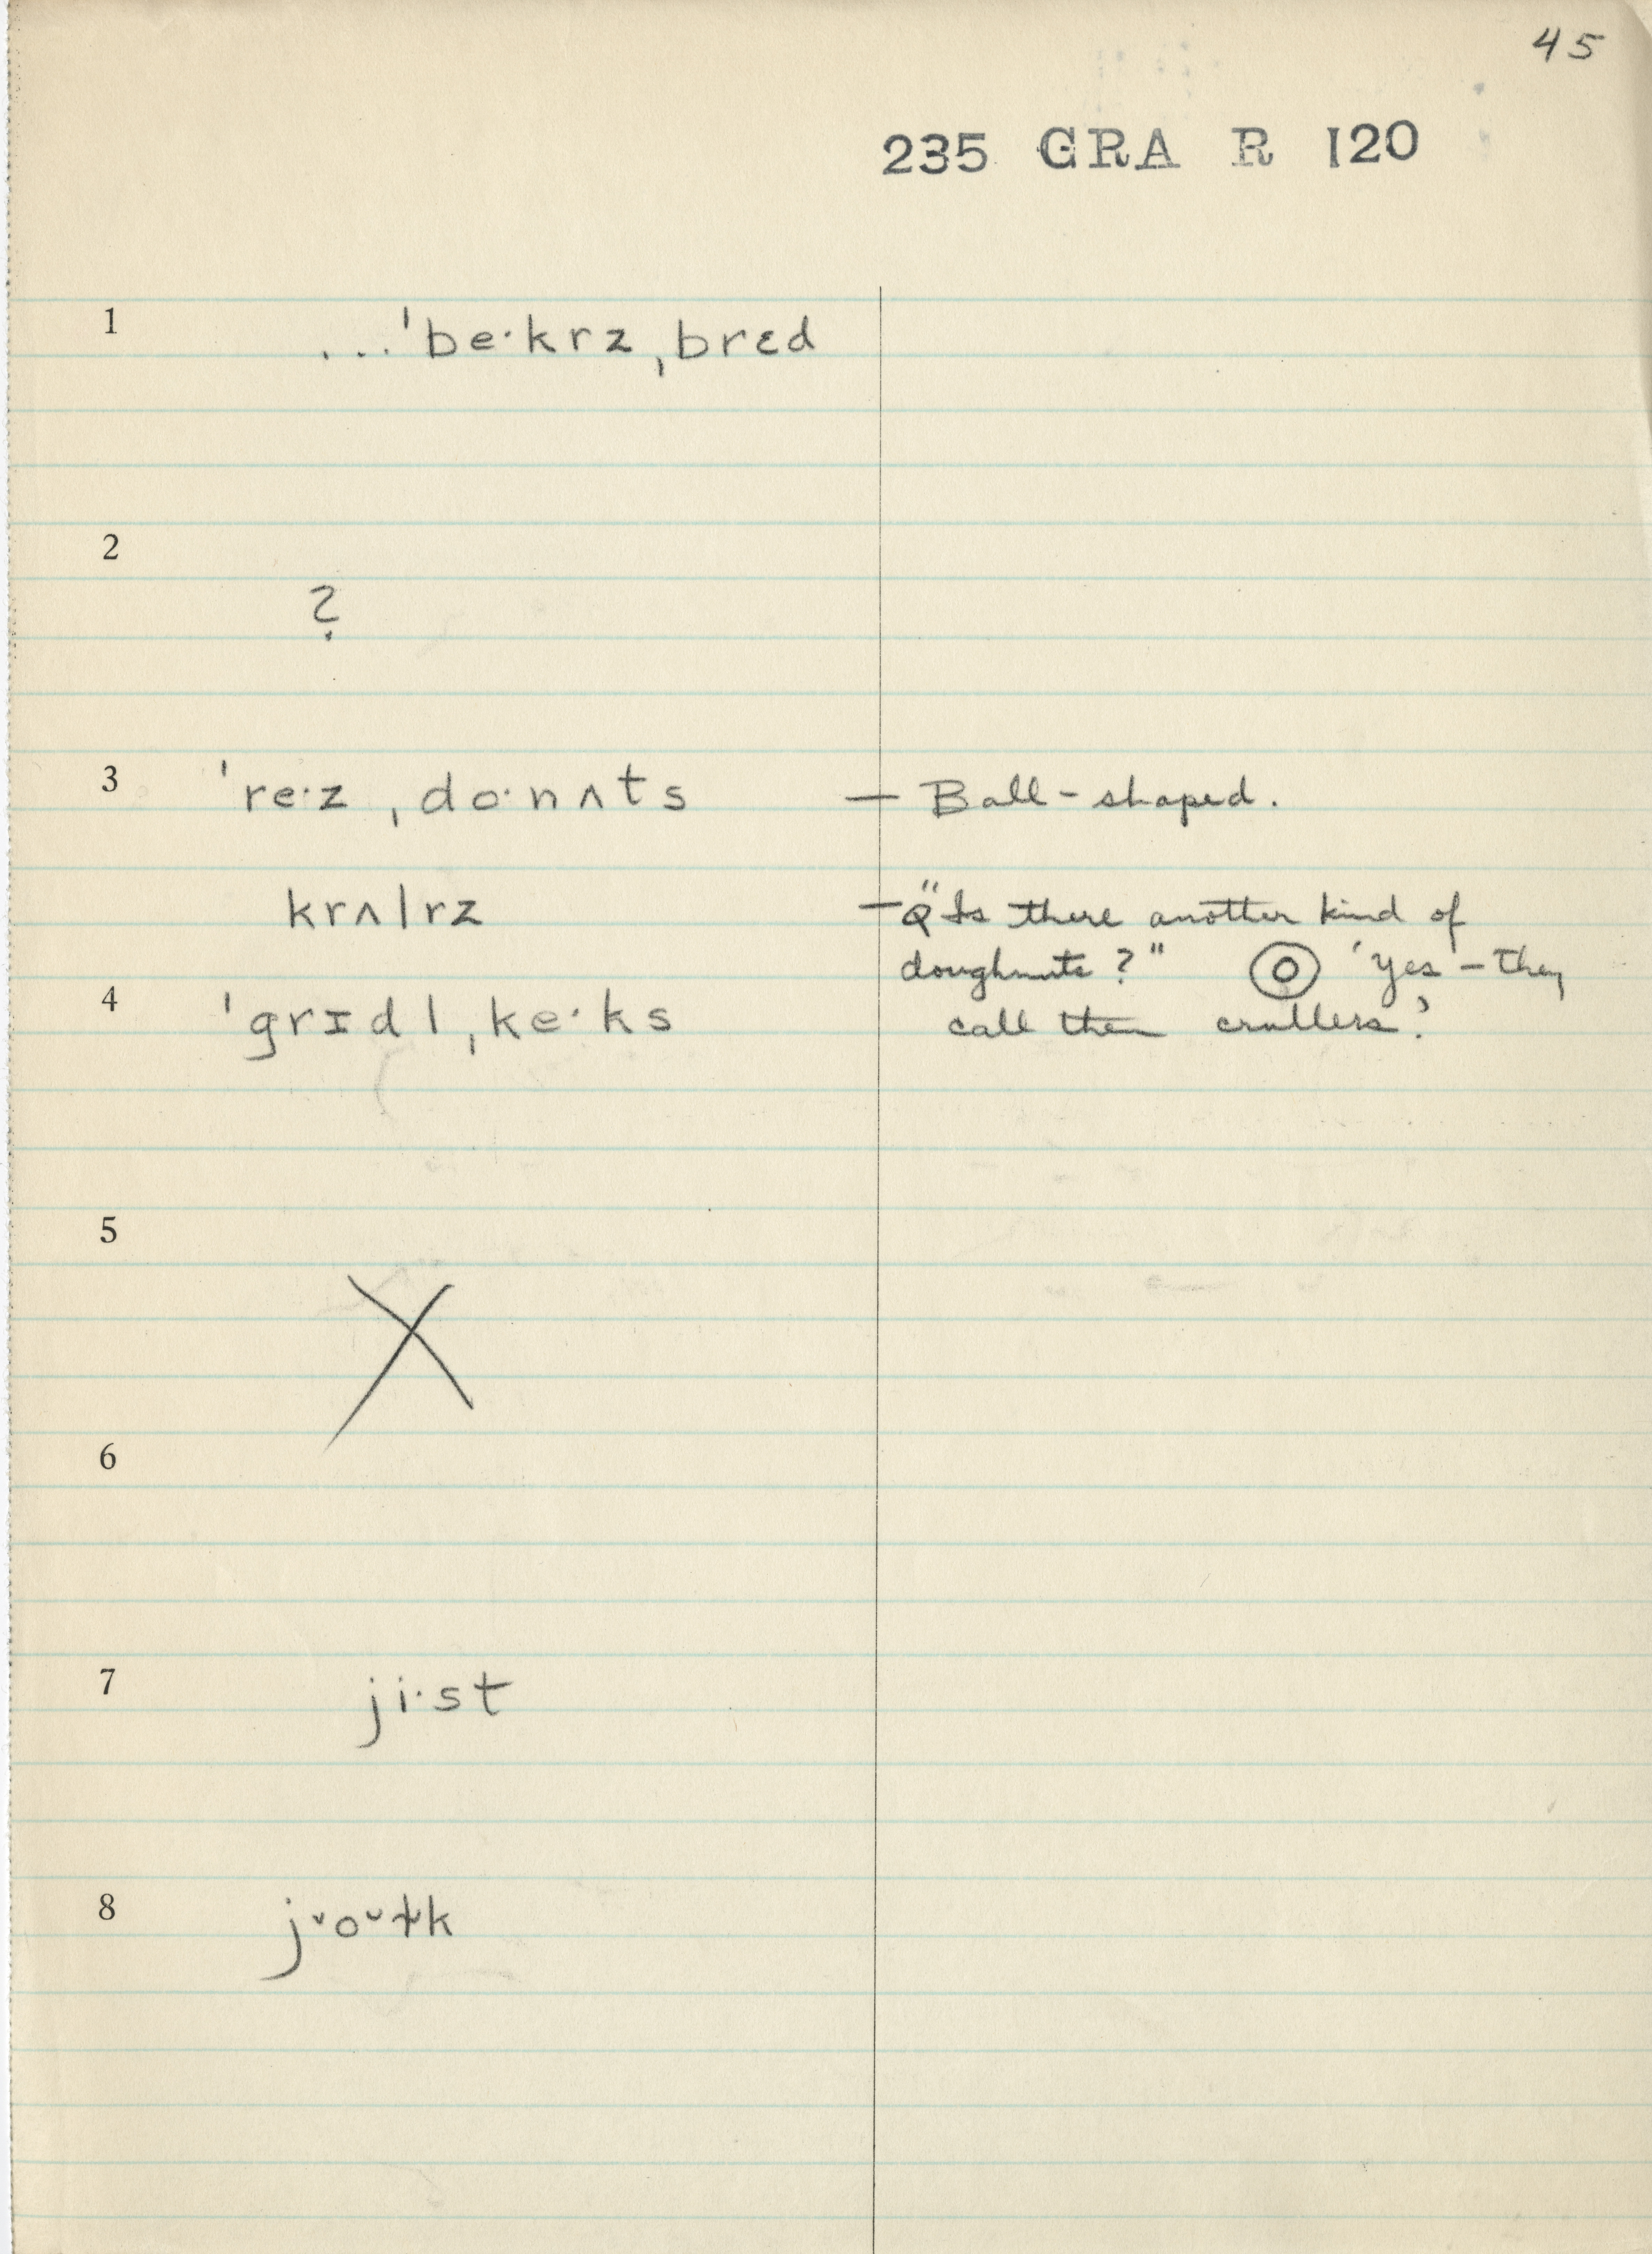 45
235 GRA R 120
1 ...ˈbe·krz ˌbrɛd
2 ?
3 ˈre·z ˌdo·nʌts — Ball-shaped.
krʌlrz — Q "Is there another kind of
doughnuts?" 'Yes – they
4 ˈgrɪdl ˌke·ks call them crullers.'
5
X
6
7 ji·st
8 j˅o˅ɫk